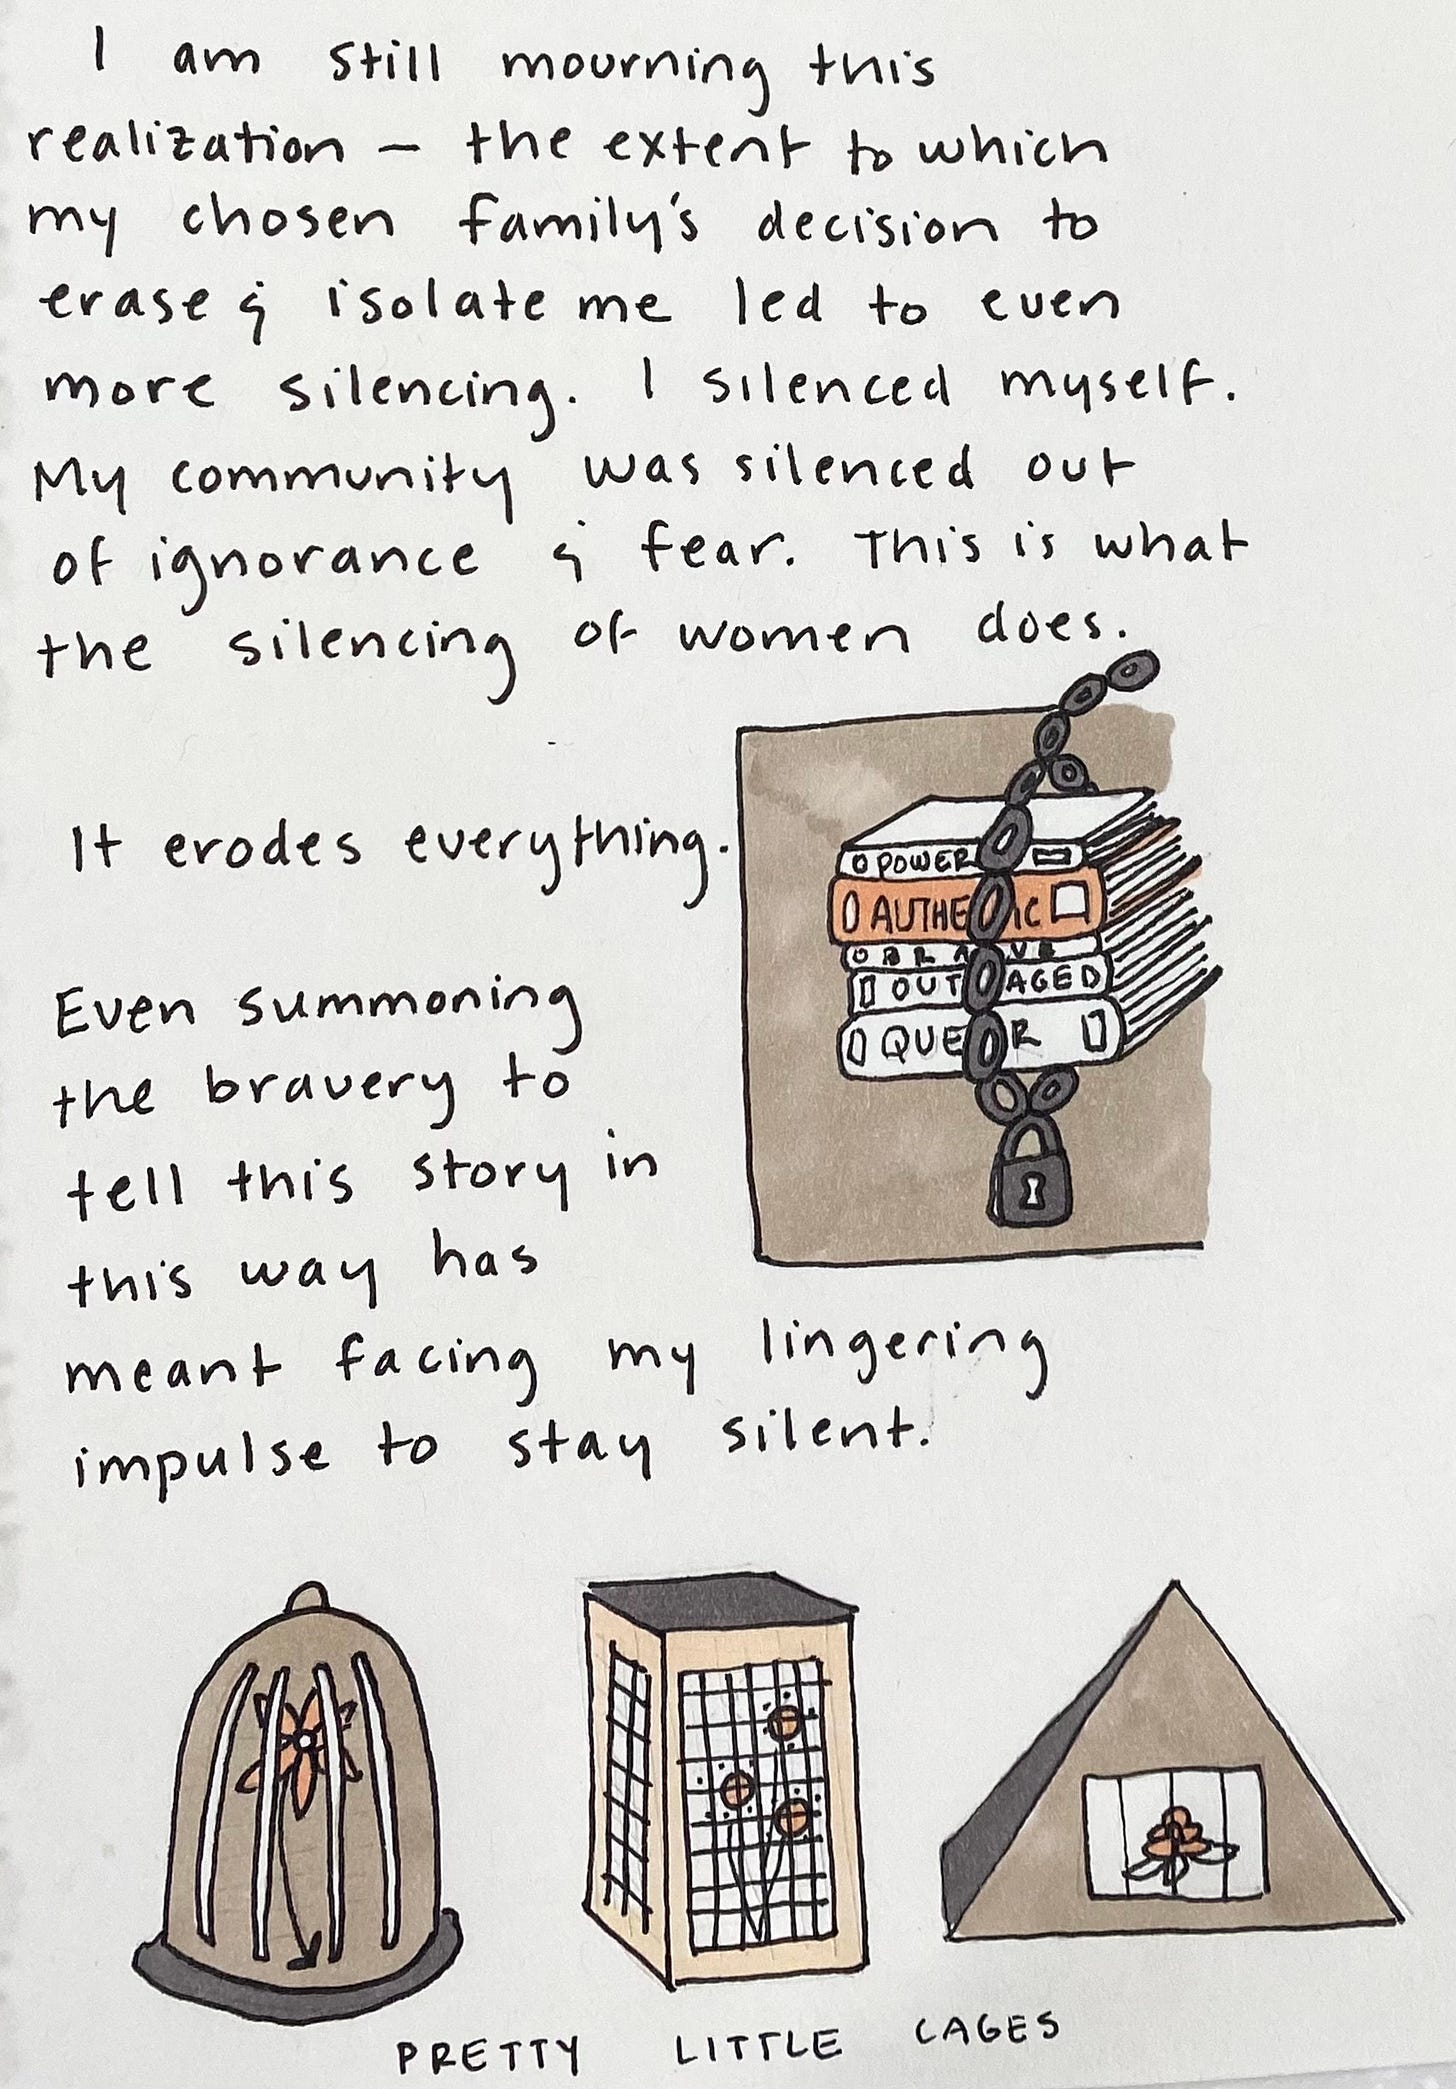 I am still mourning this
realization – the extent to which
my chosen family's decision to
erase & isolate me led to even
more silencing. I silenced myself.
My community was silenced out
of ignorance & fear. This is what
the silencing of women does.
It erodes everything.
POWER
AUTHE IC
BRAVE
OUT AGED
QUE R
Even summoning
the bravery to
tell this story in
this way has
meant facing my lingering
impulse to stay silent.
PRETTY LITTLE CAGES